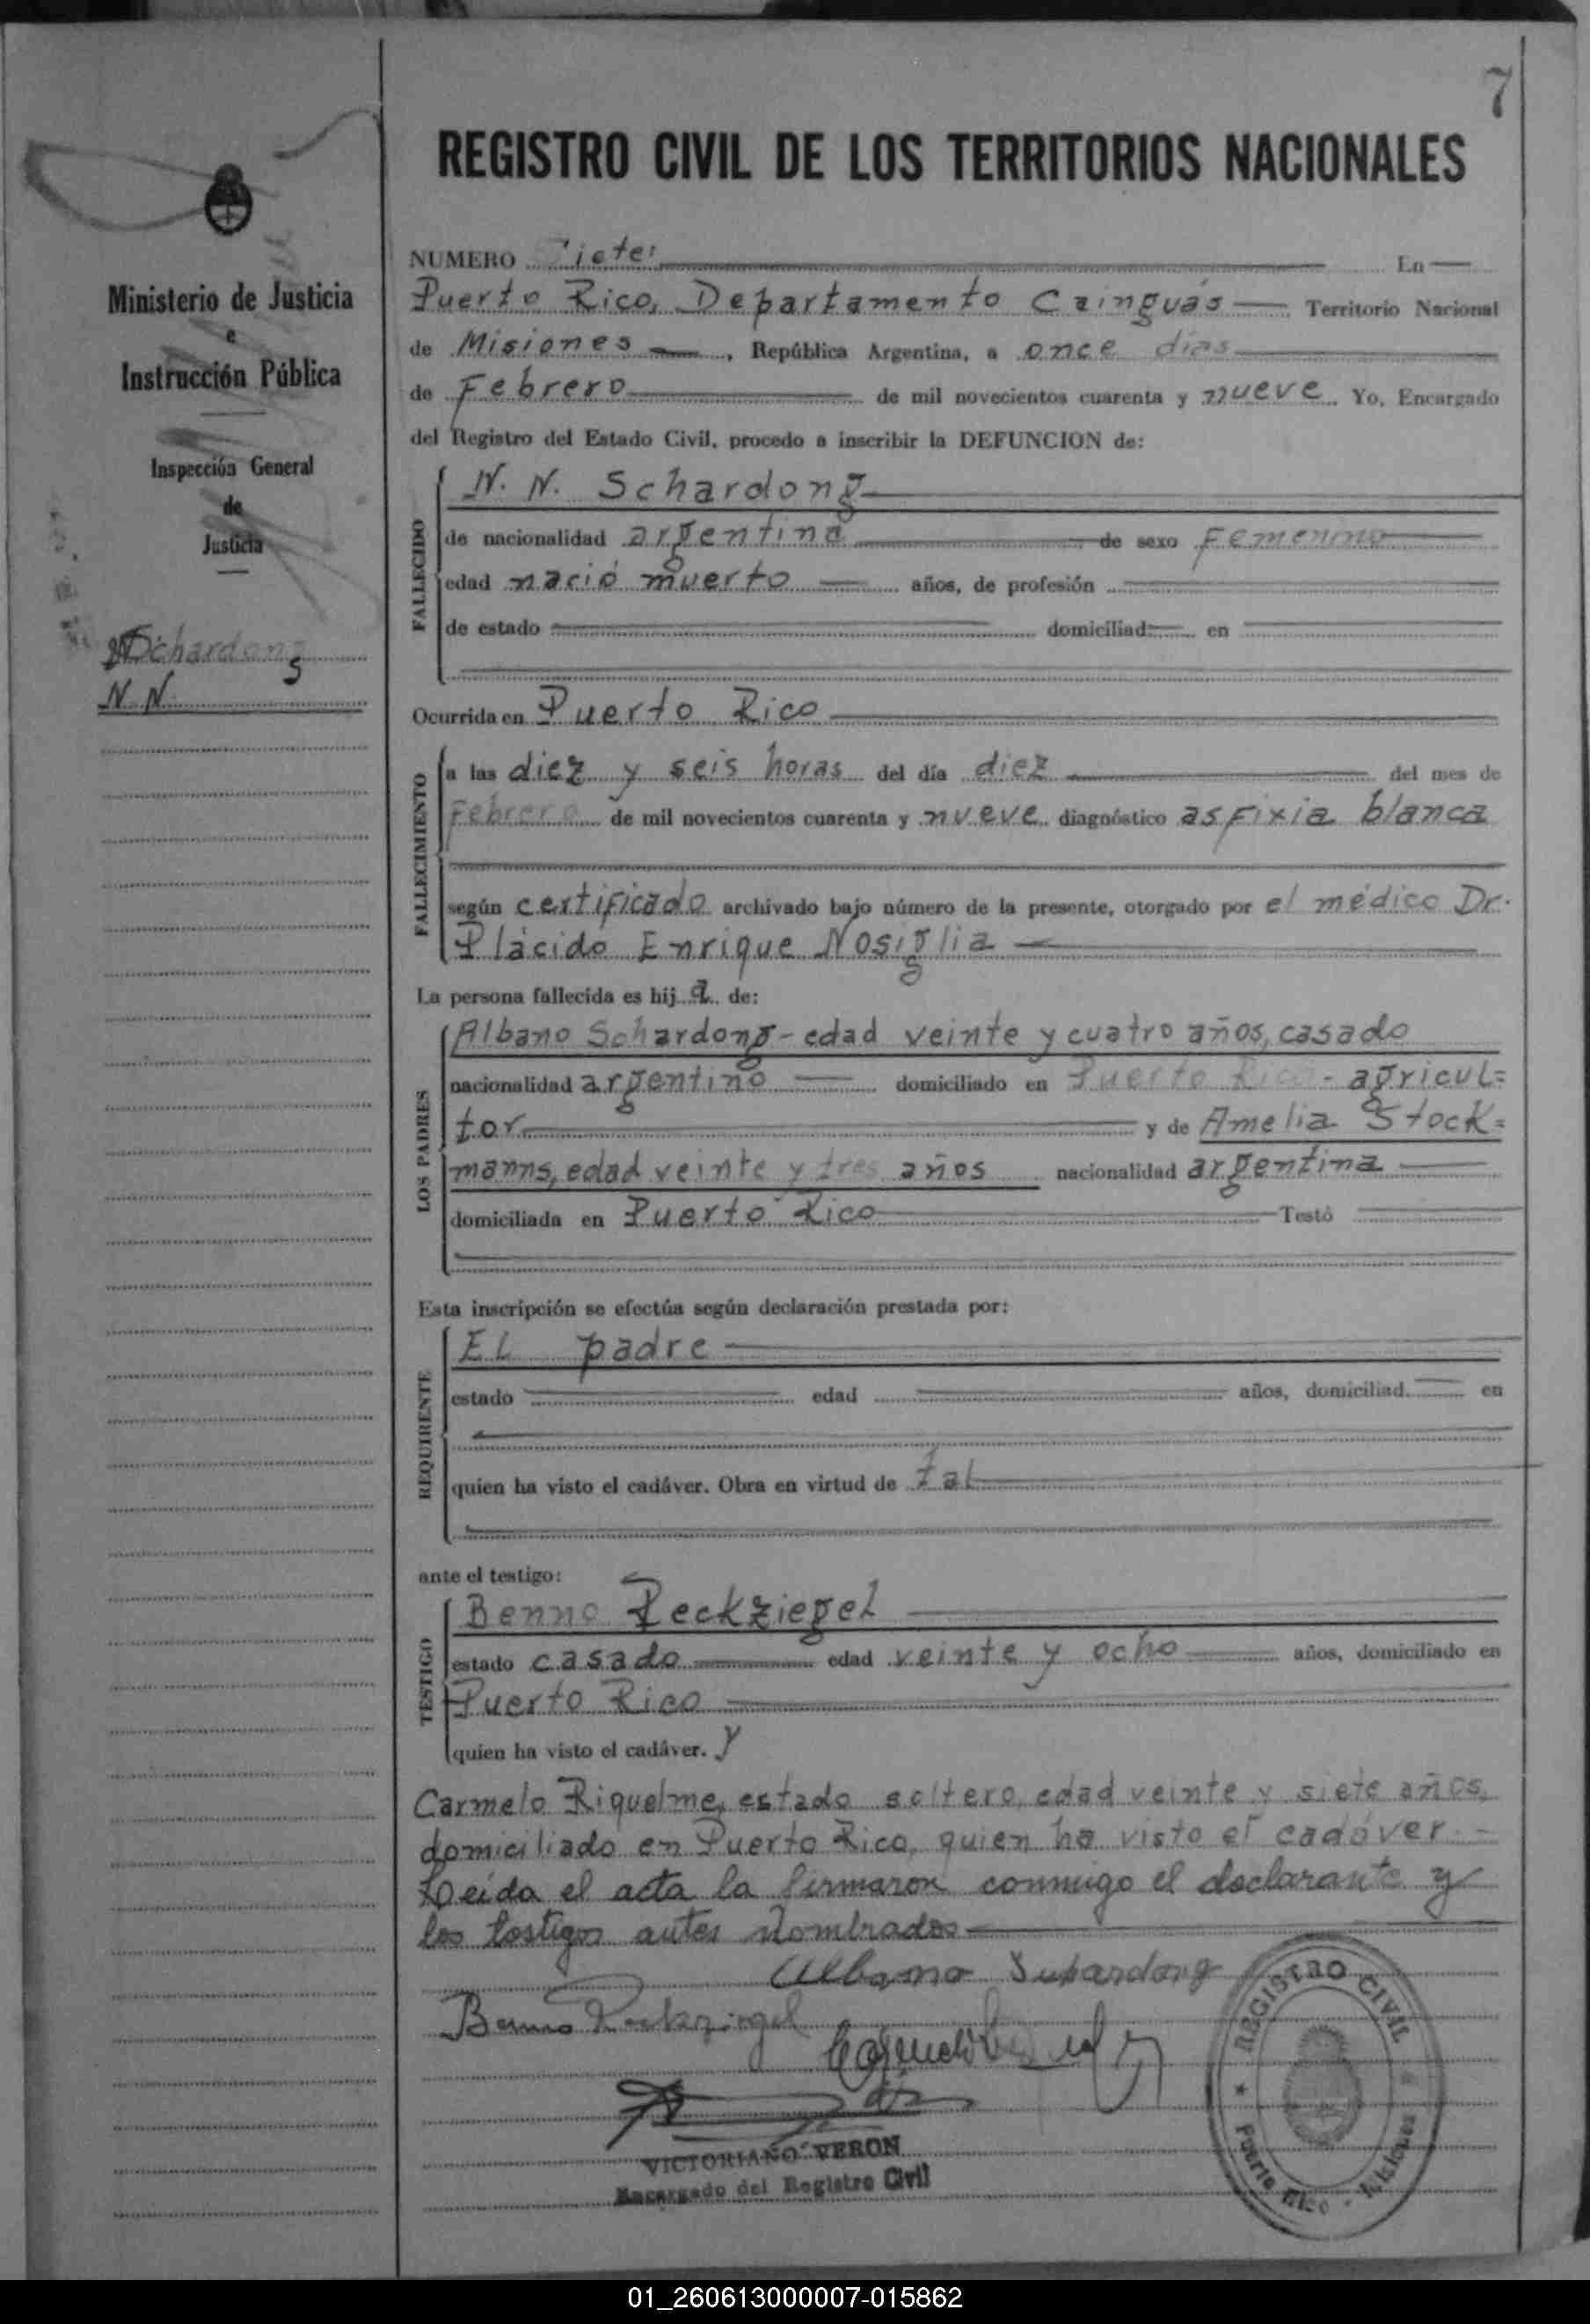 7
REGISTRO CIVIL DE LOS TERRITORIOS NACIONALES
Ministerio de Justicia
e
Instrucción Pública
Inspección General
de
Justicia
Schardong
N. N.
NUMERO Siete: En
Puerto Rico, Departamento Cainguás Territorio Nacional
de Misiones, República Argentina, a once días
de Febrero de mil novecientos cuarenta y nueve Yo, Encargado
del Registro del Estado Civil, procedo a inscribir la DEFUNCION de:
FALLECIDO
N. N. Schardong
de nacionalidad argentina de sexo Femenino
edad nació muerto años, de profesión
de estado domiciliad en
Ocurrida en Puerto Rico
FALLECIMIENTO
a las diez y seis horas del día diez del mes de
Febrero de mil novecientos cuarenta y nueve diagnóstico asfixia blanca
según certificado archivado bajo número de la presente, otorgado por el médico Dr.
Plácido Enrique Nosiglia
La persona fallecida es hij a de:
LOS PADRES
Albano Schardong - edad veinte y cuatro años, casado
nacionalidad argentino domiciliado en Puerto Rico - agricul=
tor y de Amelia Stock=
manns, edad veinte y tres años nacionalidad argentina
domiciliada en Puerto Rico Testó
Esta inscripción se efectúa según declaración prestada por:
REQUIRENTE
EL padre
estado edad años, domiciliad en
quien ha visto el cadáver. Obra en virtud de tal
ante el testigo:
TESTIGO
Benno Reckziegel
estado casado edad veinte y ocho años, domiciliado en
Puerto Rico
quien ha visto el cadáver. y
Carmelo Riquelme, estado soltero, edad veinte y siete años,
domiciliado en Puerto Rico, quien ha visto el cadáver.-
Leída el acta la firmaron conmigo el declarante y
los testigos antes nombrados
Albano Schardong
Benno Reckziegel
VICTORIANO VERON
Encargado del Registro Civil
REGISTRO CIVIL
Puerto Rico - Misiones
01_260613000007-015862